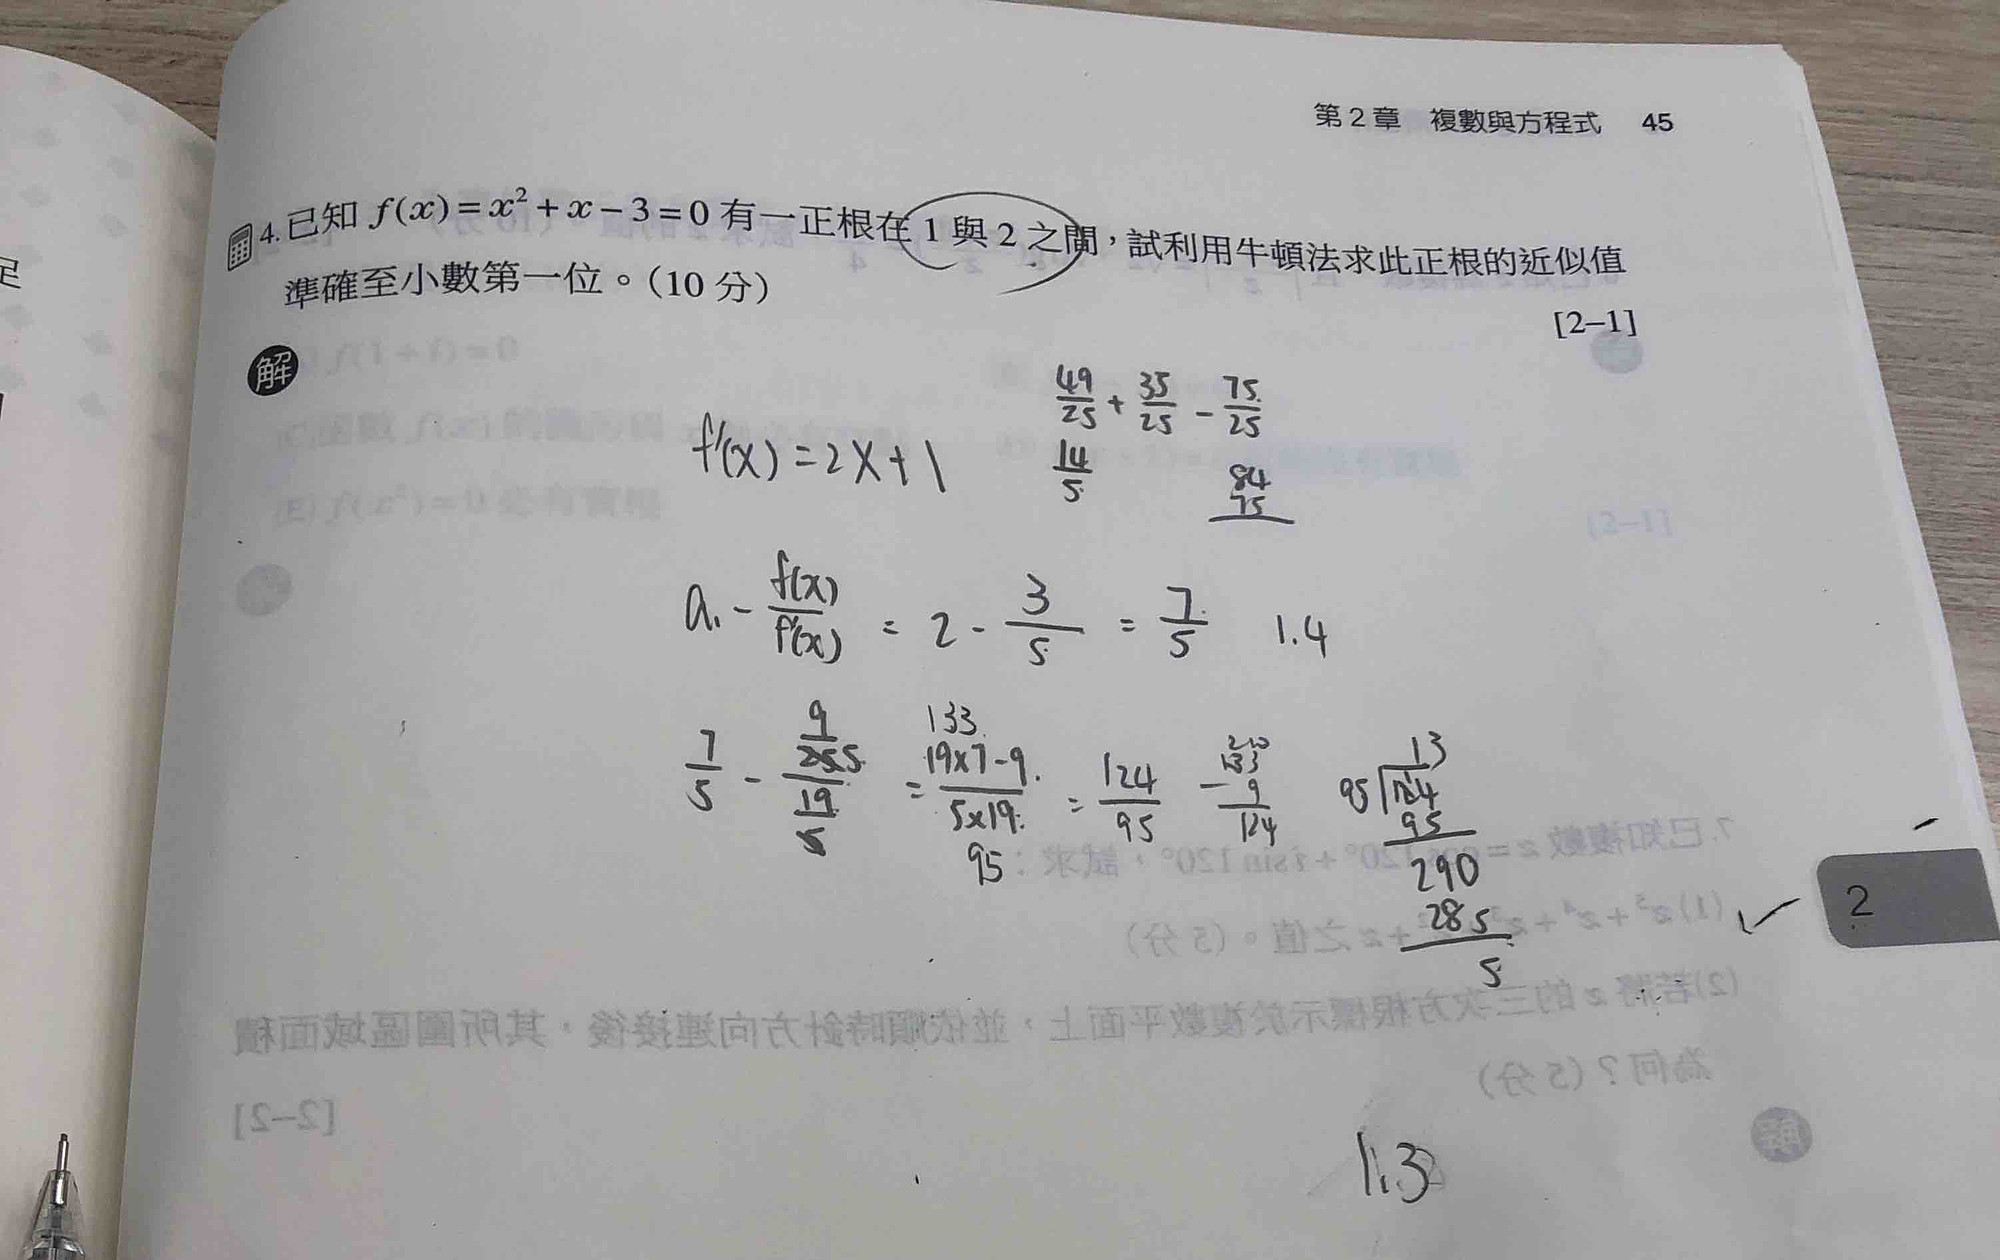 第2章 複數與方程式 45
4.已知 f(x)=x²+x-3=0 有一正根在 1 與 2 之間，試利用牛頓法求此正根的近似值
準確至小數第一位。(10 分)
[2-1]
解
49/25 + 35/25 - 75/25
f'(x)=2x+1
14/5
84
75
a₁ - f(x)/f'(x) = 2 - 3/5 = 7/5 1.4
133
7/5 - (9/25)/(19/5) = (19×7-9)/(5×19) = 124/95
95
133
- 9
124
13
95 124
95
290
285
5
2
1.3